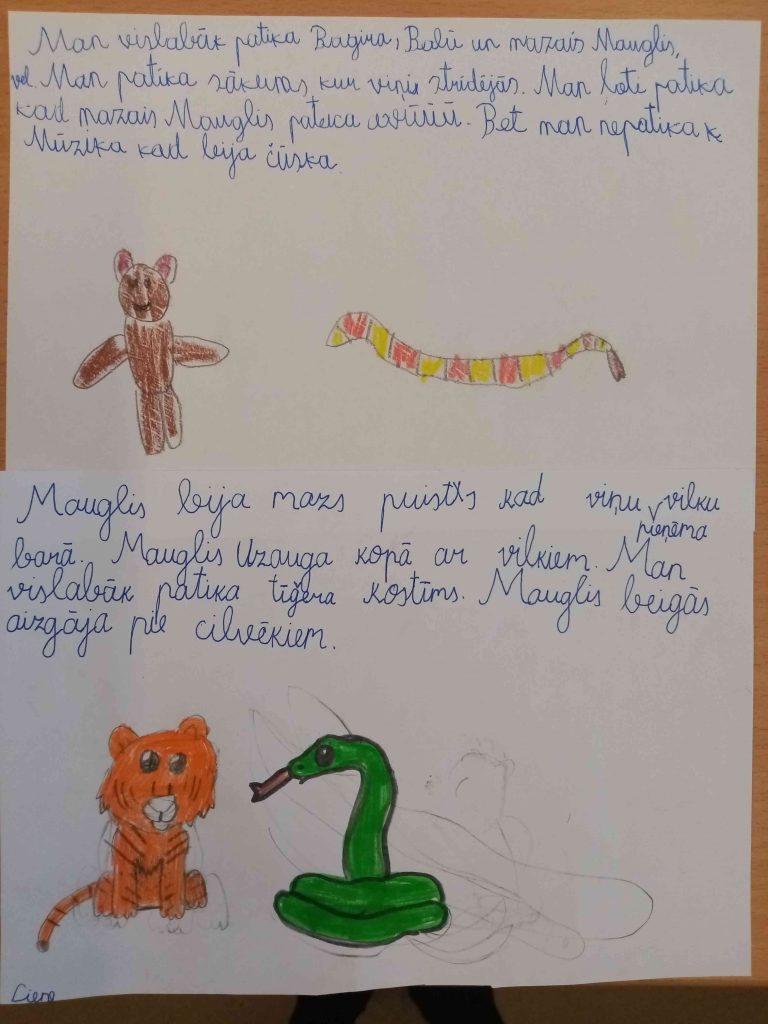 Man vislabāk patika Bagira, Balū un mazais Mauglis,
vel. Man patika sākums kur viņi strīdējās. Man ļoti patika
kad mazais Mauglis pateica aūūūū. Bet man nepatika k
Mūzika kad bija čūska.
Mauglis bija mazs puisītis kad viņu vilku
pieņēma
barā. Mauglis Uzauga kopā ar vilkiem. Man
vislabāk patika tīģera kostīms. Mauglis beigās
aizgāja pie cilvēkiem.